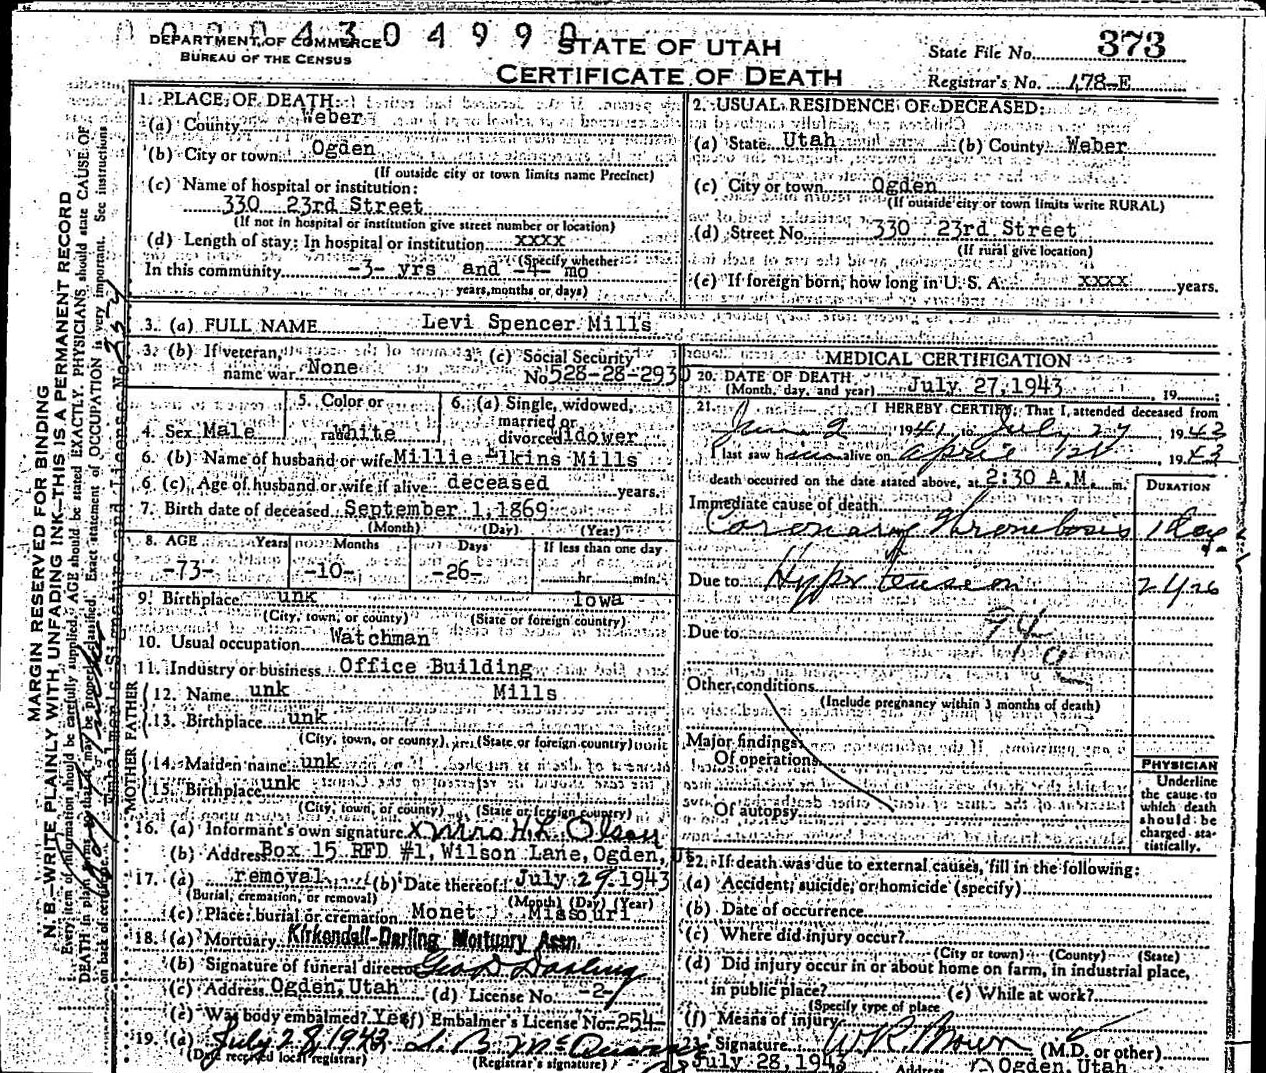 0020430499 0
DEPARTMENT OF COMMERCE
BUREAU OF THE CENSUS
STATE OF UTAH
CERTIFICATE OF DEATH
State File No. 373
Registrar's No. 178-E
MARGIN RESERVED FOR BINDING
N. B.—WRITE PLAINLY WITH UNFADING INK—THIS IS A PERMANENT RECORD
Every item of information should be carefully supplied. AGE should be stated EXACTLY. PHYSICIANS should state CAUSE OF
DEATH in plain that it may be properly classified. Exact statement of OCCUPATION is very important. See instructions
on back of certificate.
1. PLACE OF DEATH:
(a) County Weber
(b) City or town Ogden
(If outside city or town limits name Precinct)
(c) Name of hospital or institution:
330 23rd Street
(If not in hospital or institution give street number or location)
(d) Length of stay: In hospital or institution xxxx
(Specify whether
In this community -3- yrs and -4- mo
years, months or days)
2. USUAL RESIDENCE OF DECEASED:
(a) State Utah (b) County Weber
(c) City or town Ogden
(If outside city or town limits write RURAL)
(d) Street No. 330 23rd Street
(If rural give location)
(e) If foreign born, how long in U. S. A. xxxx years.
3. (a) FULL NAME Levi Spencer Mills
3. (b) If veteran, name war None
3. (c) Social Security No. 528-28-2930
4. Sex Male
5. Color or race White
6. (a) Single, widowed, married or divorced Widower
6. (b) Name of husband or wife Millie Elkins Mills
6 (c) Age of husband or wife if alive deceased years.
7. Birth date of deceased September 1, 1869
(Month) (Day) (Year)
8. AGE Years Months Days If less than one day
-73- -10- -26- hr. min.
9. Birthplace unk Iowa
(City, town, or county) (State or foreign country)
10. Usual occupation Watchman
11. Industry or business Office Building
FATHER
12. Name unk Mills
13. Birthplace unk
(City, town, or county) (State or foreign country)
MOTHER
14. Maiden name unk
15. Birthplace unk
(City, town, or county) (State or foreign country)
16. (a) Informant's own signature x Mrs H. L. Olson
(b) Address Box 15 RFD #1, Wilson Lane, Ogden, Ut.
17. (a) removal (b) Date thereof July 29 1943
(Burial, cremation, or removal) (Month) (Day) (Year)
(c) Place: burial or cremation Monet Missouri
18. (a) Mortuary Kirkendall-Darling Mortuary Assn.
(b) Signature of funeral director Geo D Darling
(c) Address Ogden, Utah (d) License No. -2-
(e) Was body embalmed? Yes (f) Embalmer's License No. -254-
19. (a) July 28, 1943
(Date received local registrar) (Registrar's signature)
MEDICAL CERTIFICATION
20. DATE OF DEATH
(Month, day, and year) July 27, 1943, 19
21. I HEREBY CERTIFY, That I attended deceased from
June 2 1941, to July 27, 1943
I last saw him alive on April 1943
death occurred on the date stated above, at 2:30 A.M. m.
DURATION
Immediate cause of death
Coronary Thrombosis 1 day
Due to Hypertension
Due to
Other conditions
(Include pregnancy within 3 months of death)
Major findings:
Of operations
Of autopsy
PHYSICIAN
Underline
the cause to
which death
should be
charged sta-
tistically.
22. If death was due to external causes, fill in the following:
(a) Accident, suicide, or homicide (specify)
(b) Date of occurrence
(c) Where did injury occur?
(City or town) (County) (State)
(d) Did injury occur in or about home on farm, in industrial place,
in public place? (e) While at work?
(Specify type of place
(f) Means of injury
23. Signature W R Brown (M.D. or other)
July 28, 1943 Address Ogden, Utah